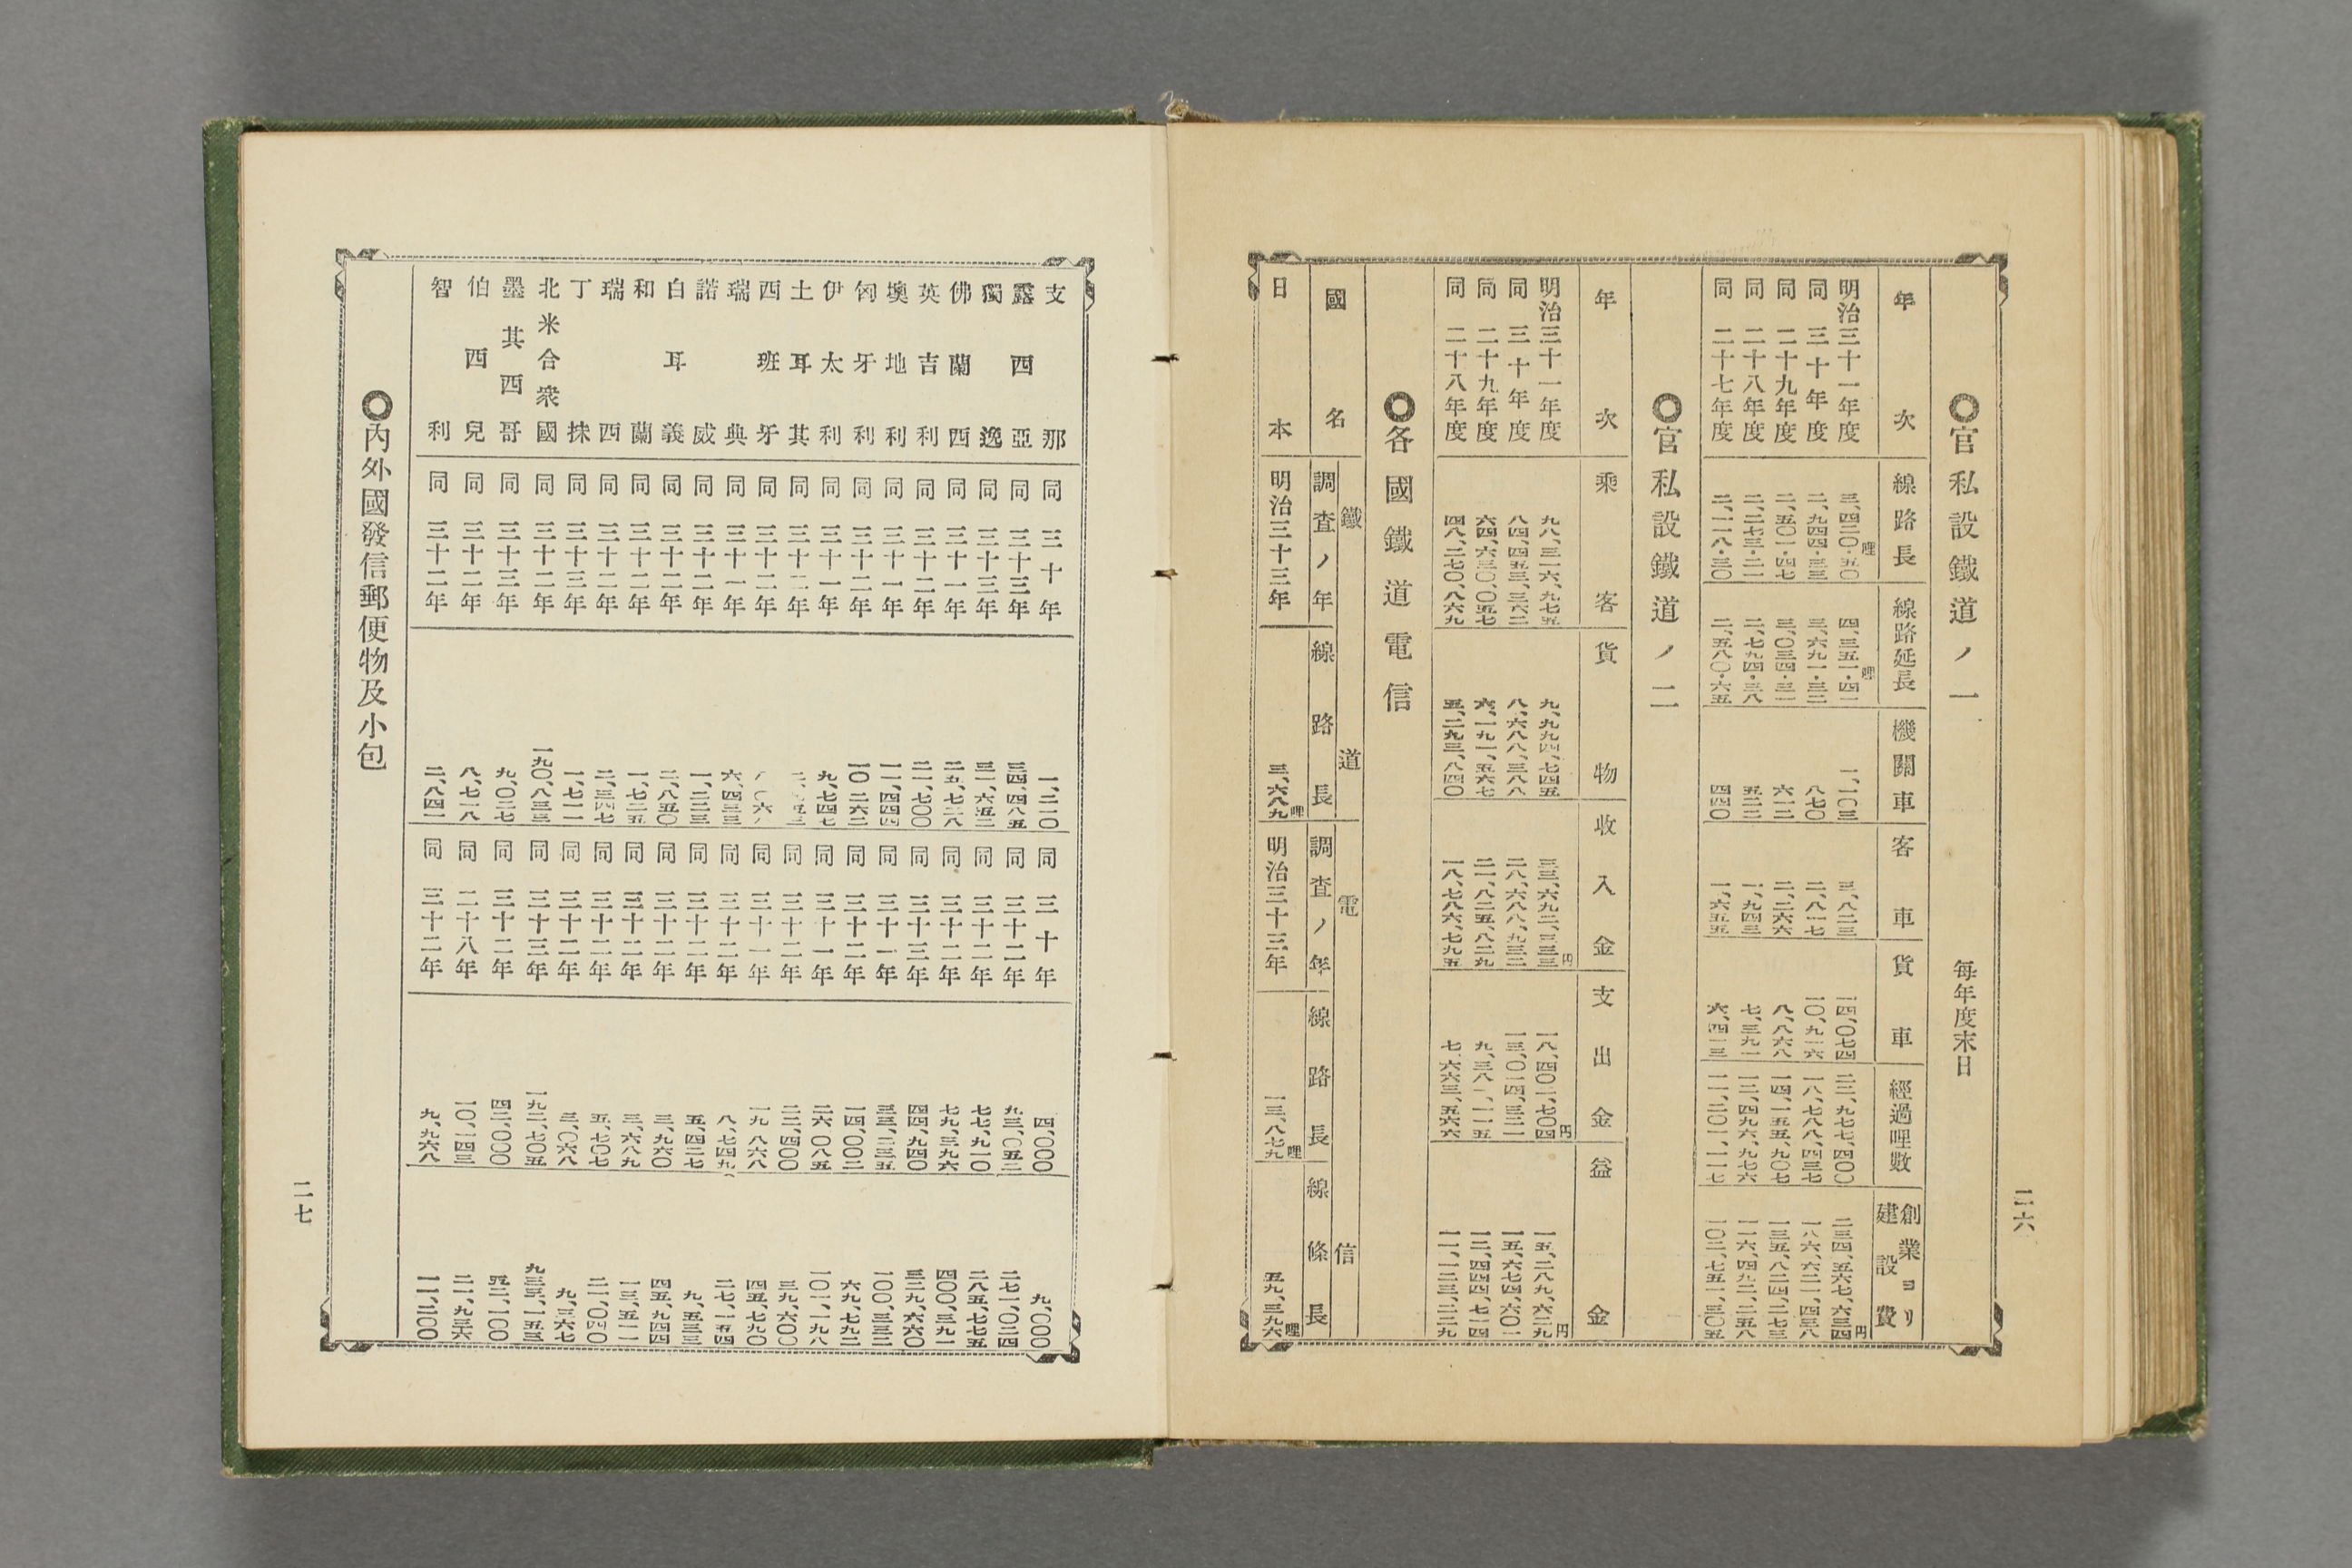 二六
◯官私設鐵道ノ一 每年度末日
年次 線路長 線路延長 機關車 客車 貨車 經過哩數 創業ヨリ建設費
明治三十一年度 三、四二〇・五〇哩 四、三五一・四二哩 一、一〇三 三、八二三 一四、〇七四 二三、九七七、四〇〇 二三四、五六七、六三四円
同 三十年度 二、九四四・三三 三、六九一・三二 八七〇 二、八一七 一〇、九一六 一八、七八八、四三七 一八六、六二一、四三八
同 二十九年度 二、五〇一・四七 三、〇三四・三一 六一二 二、二六六 八、八六八 一四、一五五、九〇七 一三五、八二四、二七三
同 二十八年度 二、二七三・二一 二、七九四・三八 五二二 一、九四三 七、三九一 一二、四九六、九七六 一一六、四九二、二五八
同 二十七年度 二、一一八・三〇 二、五八〇・六五 四四〇 一、六五五 六、四一三 一一、二〇一、一一七 一〇二、七五一、三〇五
◯官私設鐵道ノ二
年次 乘客 貨物 收入金 支出金 益金
明治三十一年度 九八、三一六、九七五 九、九九四、七四五 三三、六九二、三三三円 一八、四〇二、七〇四円 一五、二八九、六二九円
同 三十年度 八四、四五三、三六二 八、六八八、三八八 二八、六八八、九三二 一三、〇一四、三三一 一五、六七四、六〇一
同 二十九年度 六四、六三〇、〇五七 六、一九一、五六七 二一、八二五、八二九 九、三八一、一一五 一二、四四四、七一四
同 二十八年度 四八、二七〇、八六九 五、二九三、八四〇 一八、七八六、七九五 七、六六三、五六六 一一、一二三、二二九
◯各國鐵道電信
國名 鐵道 電信
調査ノ年 線路長 調査ノ年 線路長 線條長
日本 明治三十三年 三、六八九哩 明治三十三年 一三、八七九哩 五九、三九六哩
支那 同三十年 一、二二〇 同三十年 四、〇〇〇 九、〇〇〇
露西亞 同三十三年 三四、四八五 同三十二年 九三、〇五二 二七一、〇二四
獨逸 同三十三年 三一、六五二 同三十二年 七七、九一〇 二八五、七七五
佛蘭西 同三十一年 二五、七二八 同三十二年 七九、三九六 四〇〇、三九一
英吉利 同三十二年 二一、七〇〇 同三十三年 四四、九四〇 三二九、六六〇
墺地利 同三十一年 一一、四四四 同三十一年 三三、二三五 一〇〇、三三二
匈牙利 同三十二年 一〇、二六二 同三十二年 一四、〇〇二 六九、七九二
伊太利 同三十一年 九、七四七 同三十一年 二六、〇八五 一〇一、一九八
土耳其 同三十二年 同三十二年 二二、四〇〇 三九、六〇〇
西班牙 同三十二年 同三十一年 一九、八六八 四五、七九〇
瑞典 同三十一年 六、四三三 同三十二年 八、七四九 二七、一五四
諾威 同三十二年 一、二三三 同三十二年 五、四二七 九、五三三
白耳義 同三十二年 二、八五〇 同三十二年 三、九六〇 四五、九四四
和蘭 同三十二年 一、七二五 同三十二年 三、六八九 一三、五一一
瑞西 同三十二年 二、三四七 同三十二年 五、七〇七 二一、〇四〇
丁抹 同三十三年 一、七一一 同三十二年 三、〇六八 九、三六七
北米合衆國 同三十二年 一九〇、八三三 同三十三年 一九二、七〇五 九三三、一五三
墨其西哥 同三十三年 九、〇二七 同三十二年 四二、〇〇〇 五二、一〇〇
伯西兒 同三十二年 八、七一八 同二十八年 一〇、一四三 二一、九三六
智利 同三十二年 二、八四一 同三十二年 九、九六八 一一、二〇〇
◯內外國發信郵便物及小包
二七